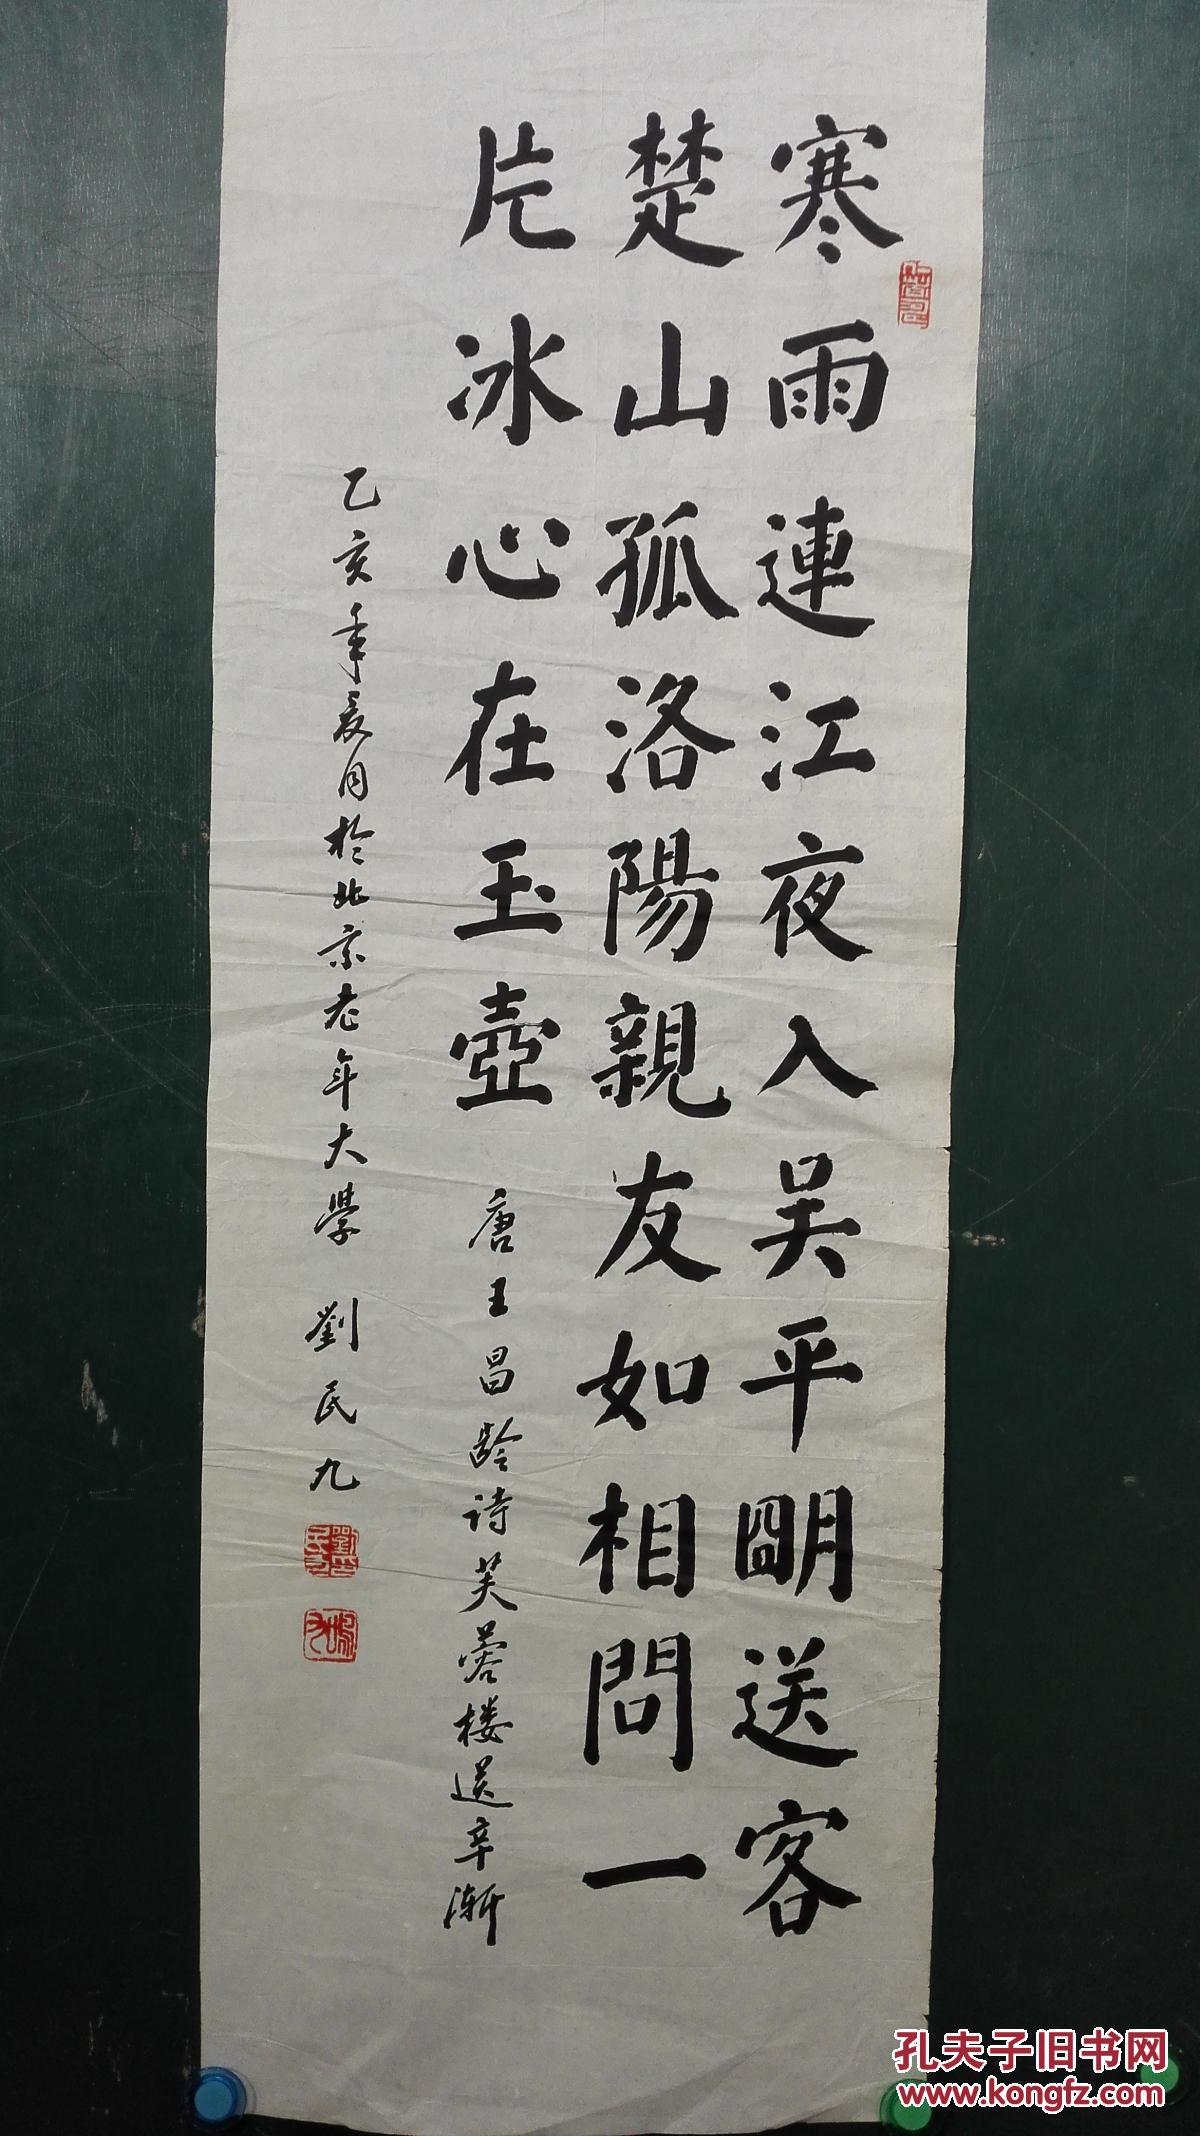 寒雨連江夜入吴平明送客
楚山孤洛陽親友如相問一
片冰心在玉壺
唐王昌龄诗芙蓉楼送辛渐
乙亥年辰月於北京老年大學 劉民九
孔夫子旧书网
www.kongfz.com